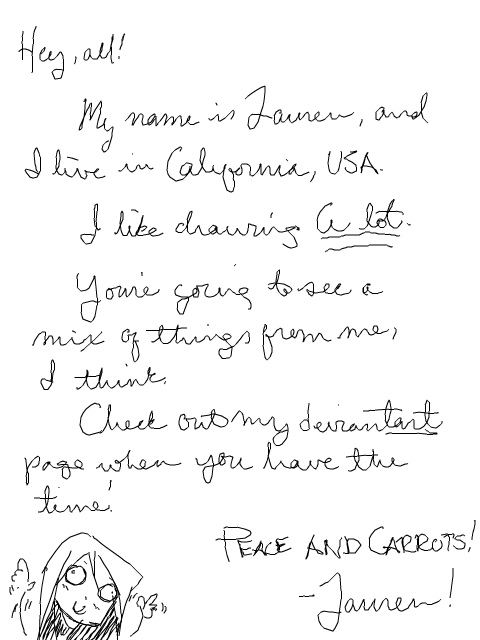 Hey, all!
My name is Lauren, and
I live in California, USA.
I like drawing a lot.
You're going to see a
mix of things from me,
I think.
Check out my deviantart
page when you have the
time!
PEACE AND CARROTS!
-Lauren!